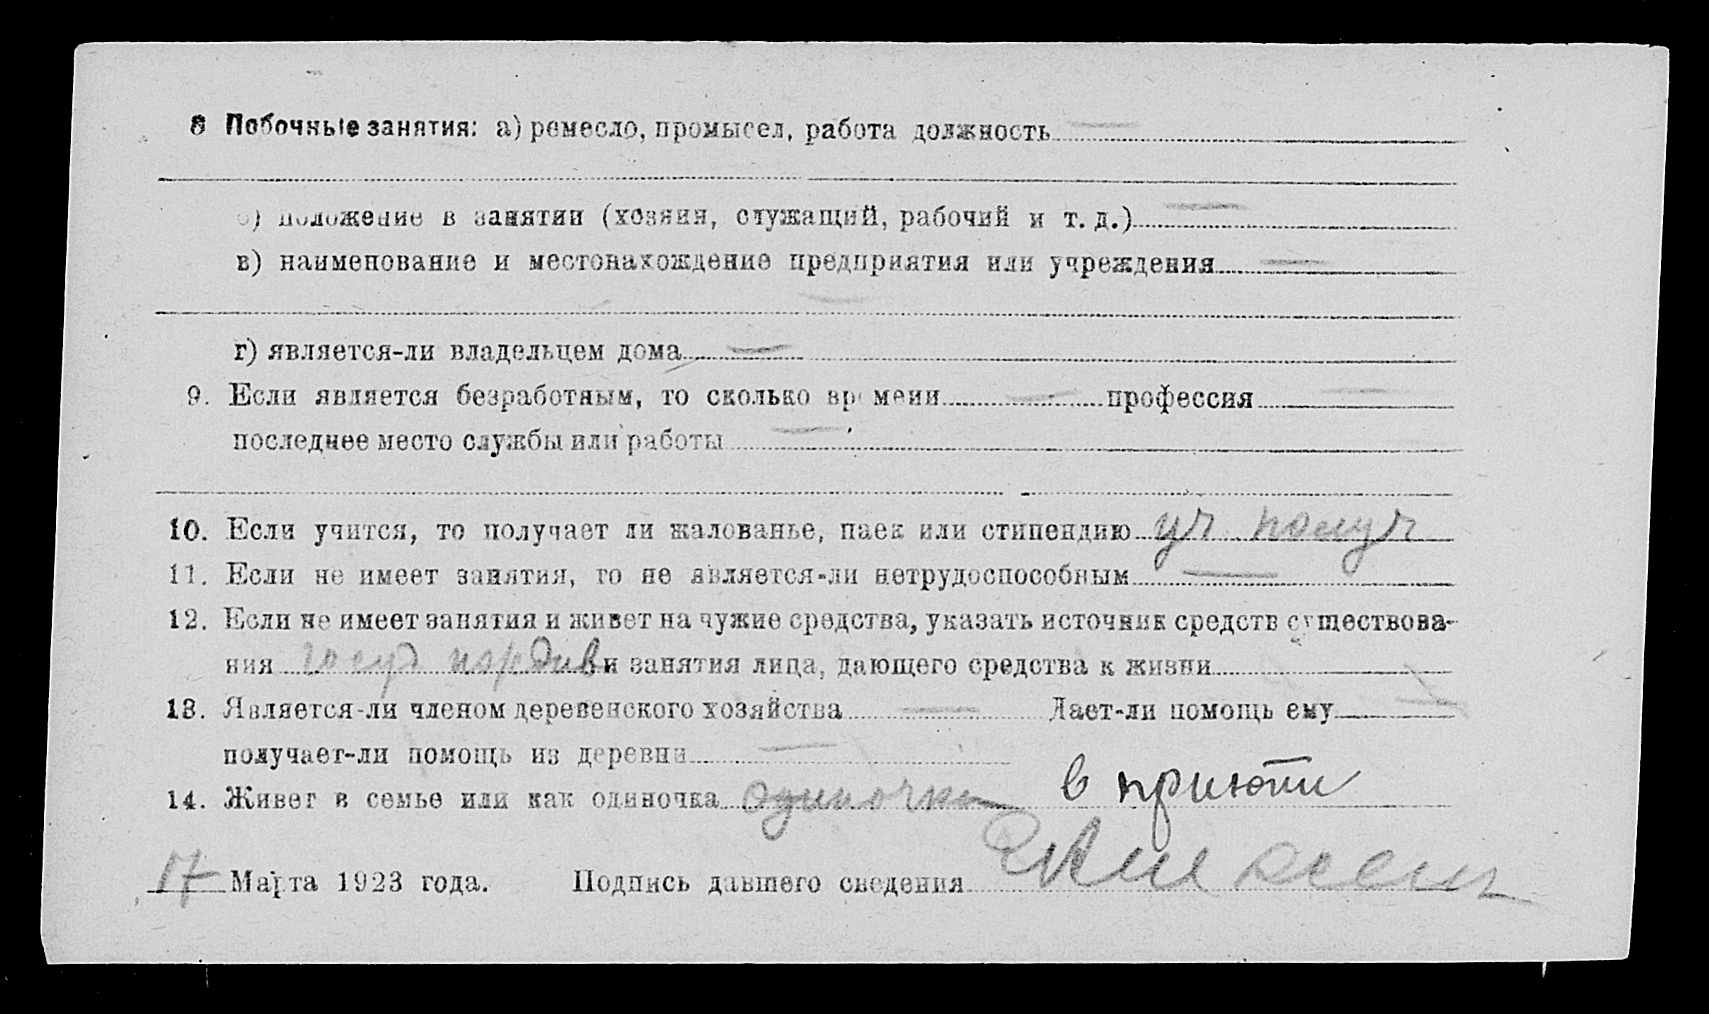 8 Побочные занятия: а) ремесло, промысел, работа должность —
б) положение в занятии (хозяин, служащий, рабочий и т. д.) —
в) наименование и местонахождение предприятия или учреждения —
—
г) является-ли владельцем дома —
9. Если является безработным, то сколько времени — профессия —
последнее место службы или работы —
10. Если учится, то получает ли жалованье, паек или стипендию уч. получ
11. Если не имеет занятия, то не является-ли нетрудоспособным —
12. Если не имеет занятия и живет на чужие средства, указать источник средств существова-
ния госуд иждив и занятия лица, дающего средства к жизни
13. Является-ли членом деревенского хозяйства — Дает-ли помощь ему —
получает-ли помощь из деревни —
14. Живет в семье или как одиночка одиночка в приюти
17 Марта 1923 года. Подпись давшего сведения